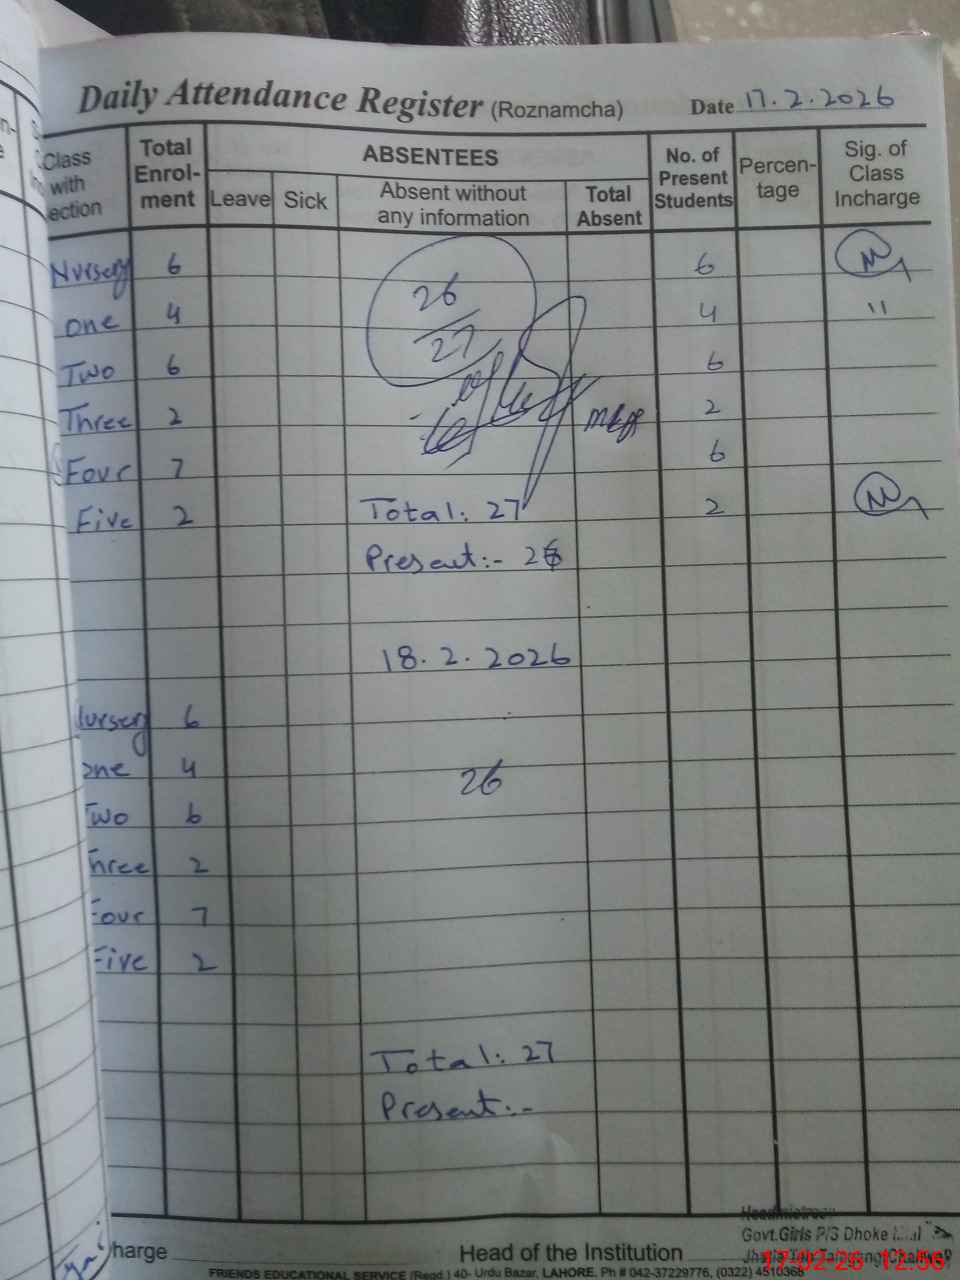 Daily Attendance Register (Roznamcha) Date 17.2.2026
Class with ection
Total Enrol-ment
ABSENTEES
Leave Sick Absent without any information Total Absent
No. of Present Students
Percen-tage
Sig. of Class Incharge
Nursery 6 6
26
one 4 4 "
27
Two 6 6
Three 2 2
Four 7 6
Five 2 Total: 27 2
Present:- 26
18.2.2026
Nursery 6
One 4 26
Two 6
Three 2
Four 7
Five 2
Total: 27
Present:-
harge Head of the Institution
Headmistress
Govt.Girls P/S Dhoke
17-02-26 12:56
FRIENDS EDUCATIONAL SERVICE (Regd.) 40- Urdu Bazar, LAHORE. Ph # 042-37229776, (0322) 4510368